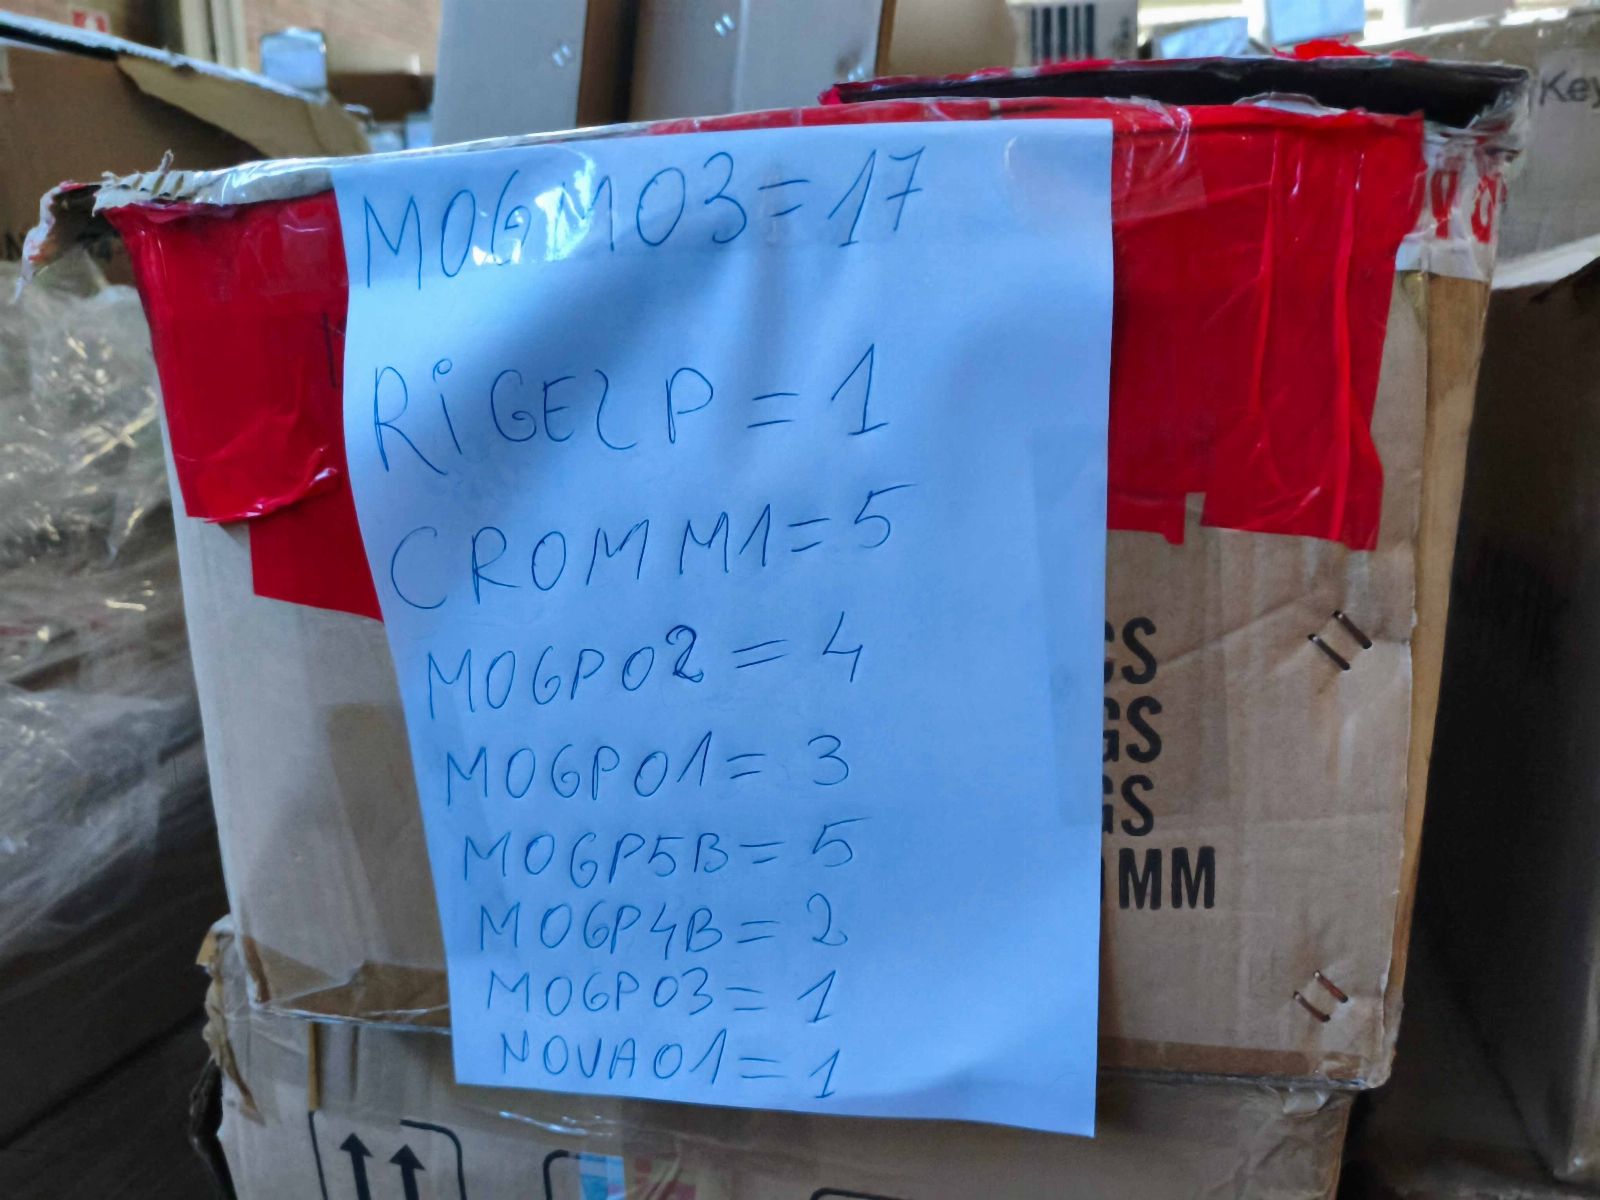 MOGMO3=17
RiGELP=1
CROMM1=5
MOGPO2=4
MOGPO1=3
MOGP5B=5
MOGP4B=2
MOGPO3=1
NOVAO1=1
CS
GS
GS
MM
Key